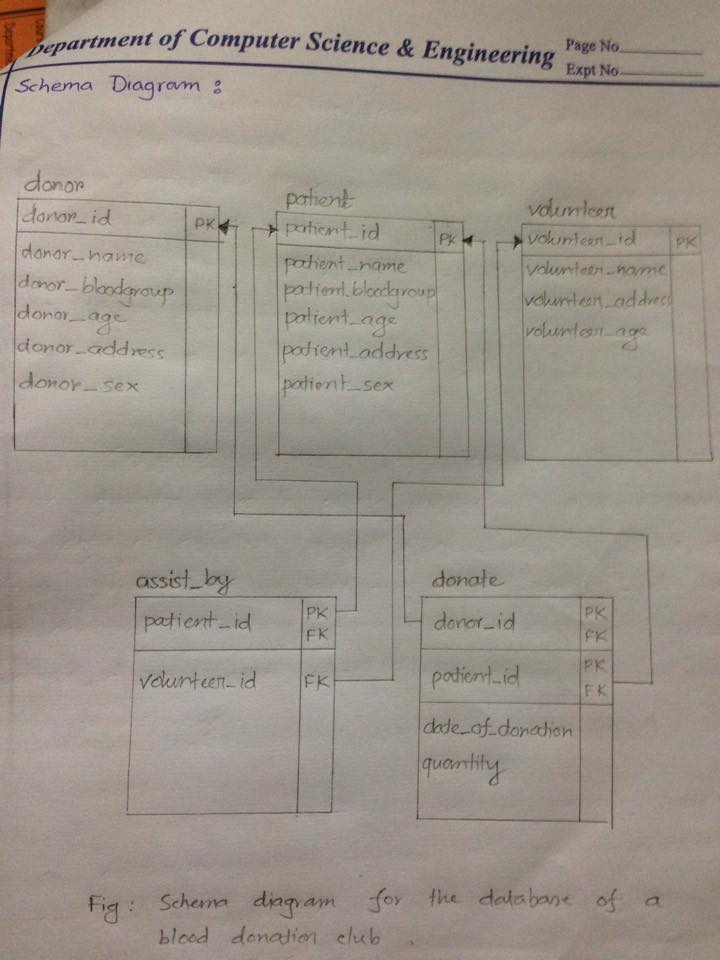 Department of Computer Science & Engineering
Page No
Expt No
Schema Diagram :
donor
donor_id PK
donor_name
donor_bloodgroup
donor_age
donor_address
donor_sex
patient
patient_id PK
patient_name
patient_bloodgroup
patient_age
patient_address
patient_sex
volunteer
volunteer_id PK
volunteer_name
volunteer_address
volunteer_age
assist_by
patient_id PK
FK
volunteer_id FK
donate
donor_id PK
FK
patient_id PK
FK
date_of_donation
quantity
Fig : Schema diagram for the database of a
blood donation club .